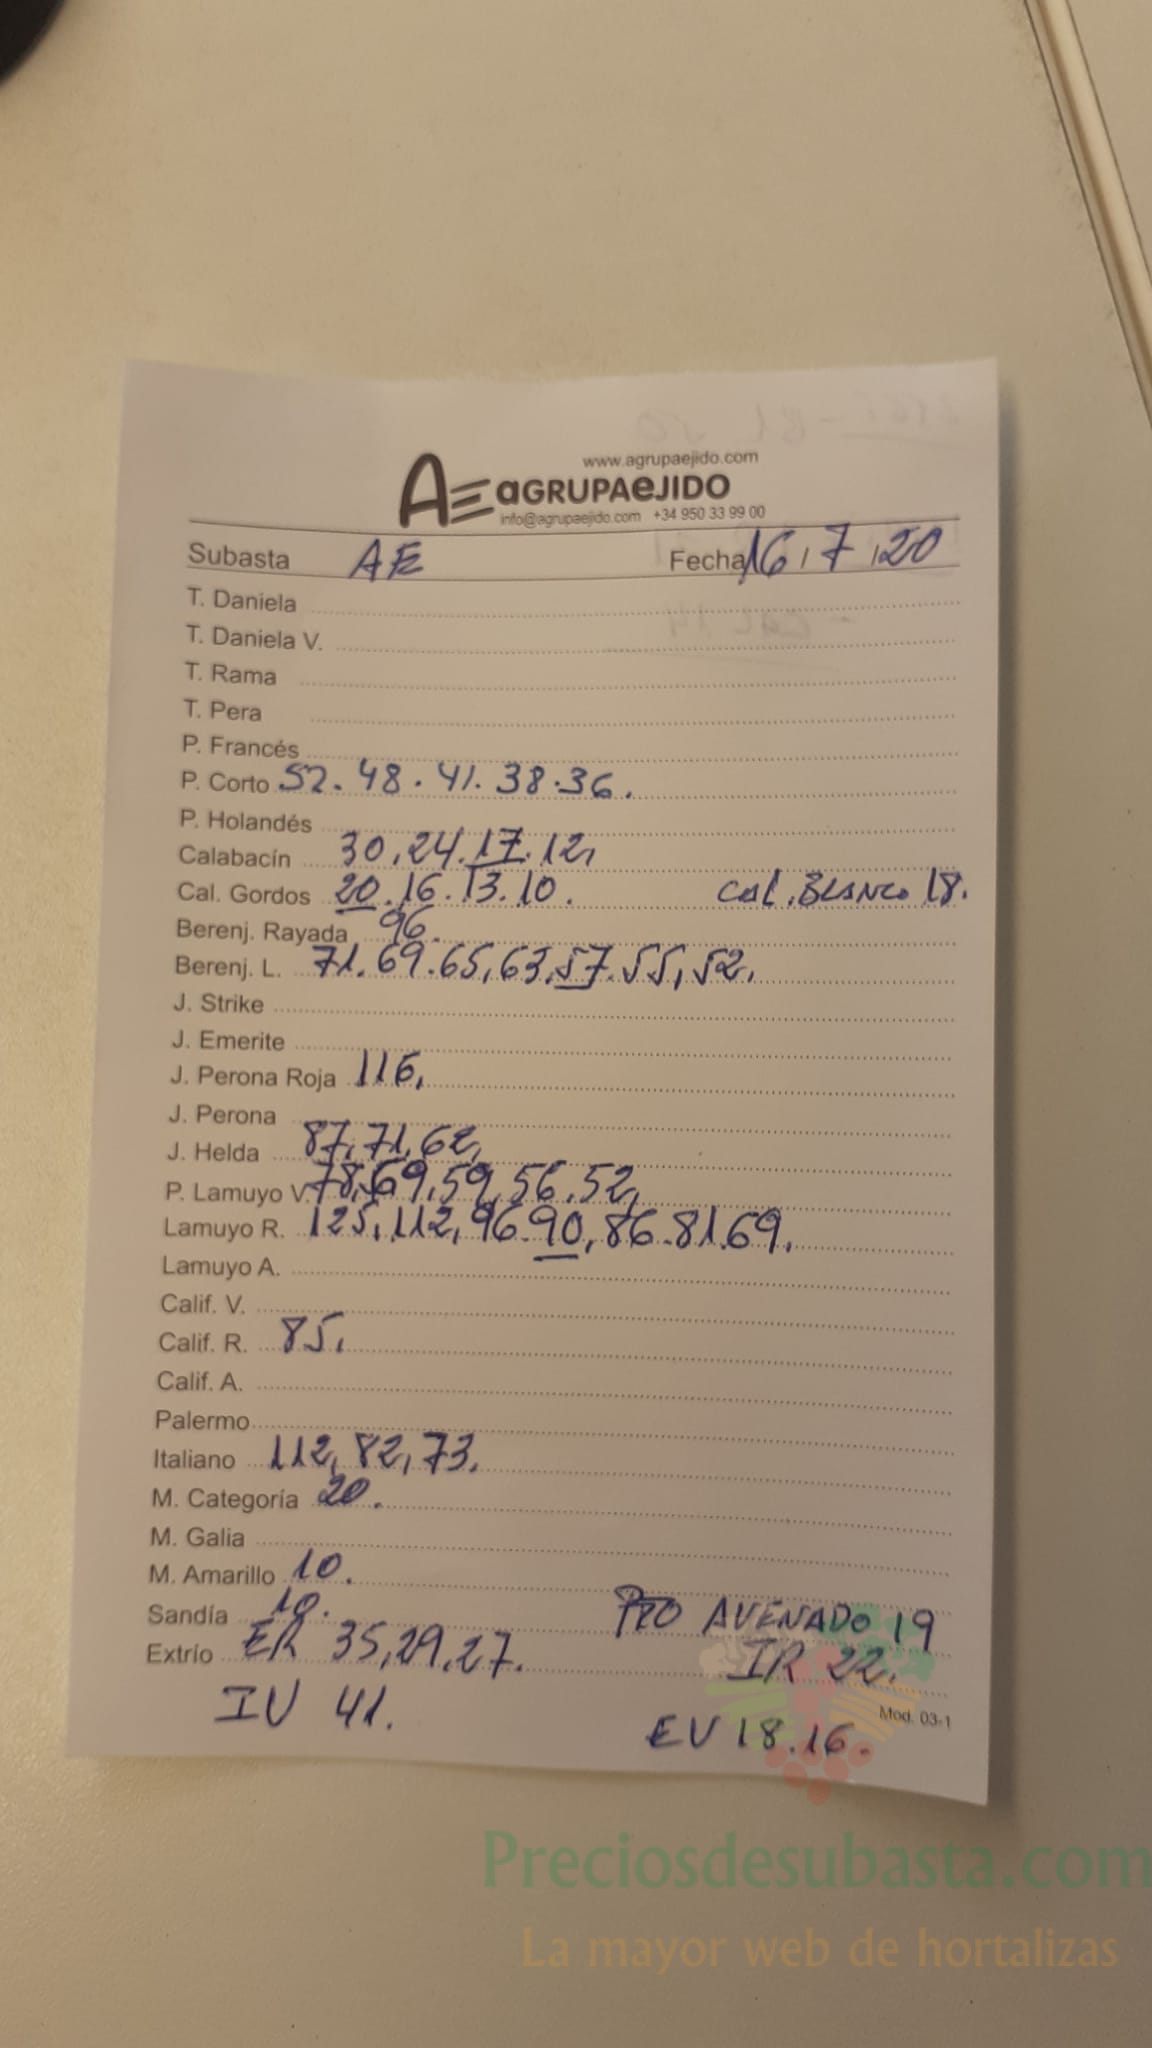 www.agrupaejido.com
AE AGRUPAEJIDO
info@agrupaejido.com +34 950 33 99 00
Subasta AE Fecha 16/7/20
T. Daniela
T. Daniela V.
T. Rama
T. Pera
P. Francés
P. Corto 52. 48. 41. 38. 36.
P. Holandés
Calabacín 30, 24. 17. 12,
Cal. Gordos 20. 16. 13. 10. Cal. BLANCO 18.
Berenj. Rayada 96.
Berenj. L. 71. 69. 65, 63. 57. 55, 52.
J. Strike
J. Emerite
J. Perona Roja 116,
J. Perona
J. Helda 87, 71, 62,
P. Lamuyo V. 78, 69, 59, 56. 52,
Lamuyo R. 125, 112, 96. 90, 86. 81. 69.
Lamuyo A.
Calif. V.
Calif. R. 85.
Calif. A.
Palermo
Italiano 112, 82, 73.
M. Categoría 20.
M. Galia
M. Amarillo 10.
Sandía 10. PTO AVENADO 19
Extrío ER 35, 29, 27. IR 22.
IV 41. EV 18. 16.
Mod. 03-1
Preciosdesubasta.com
La mayor web de hortalizas